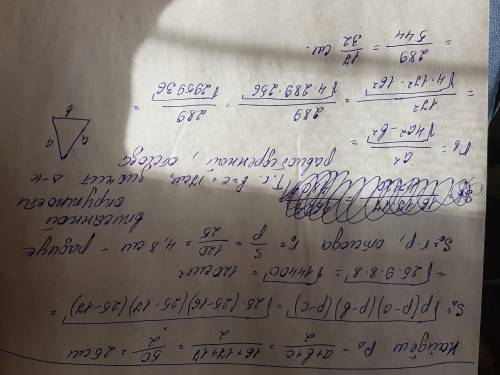 Найдём P₀ - (a+b+c)/2 = (16+17+17)/2 = 50/2 = 25 см
S₀ = √(p(p-a)(p-b)(p-c)) = √(25·(25-16)(25-17)(25-17)) =
= √(25·9·8·8) = √14400 = 120 см²
S₀ = r·p, отсюда r₀ = S/p = 120/25 = 4,8 см - радиус
вписанной
окружности
Т.к. b=c=17см, значит Δ-к
равносторенний, отсюда
r₀ = a²/√(4a²-b²) =
= 17²/√(4·17²-16²) = 289/√(4·289-256) = 289/√295936 =
= 289/544 = 17/32 см.
a b a